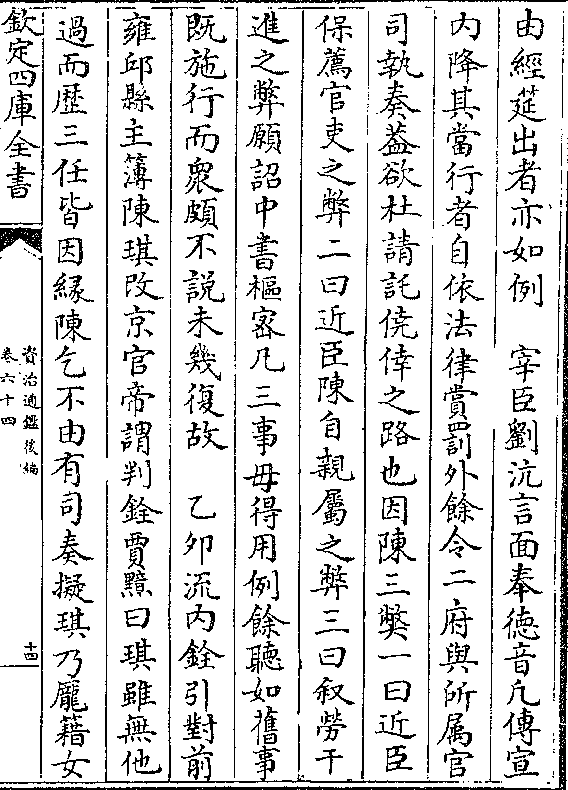 由經筵出者亦如例　宰臣劉沆言面奉德音凡傳宣
内降其當行者自依法律賞罰外餘令二府與所属官
司執奏蓋欲杜請託僥倖之路也因陳三弊一曰近臣
保薦官吏之弊二曰近臣陳自親屬之弊三曰叙勞干
進之弊願詔中書樞密凡三事毋得用例餘聽如舊事
既施行而衆頗不說未幾復故　乙夘流内銓引對前
雍邱縣主簿陳琪改京官帝謂判銓賈黯曰琪雖無他
過而歴三任皆因緣陳乞不由有司奏擬琪乃龎籍女
欽定四庫全書
資治通鑑後編
卷六十四
十四